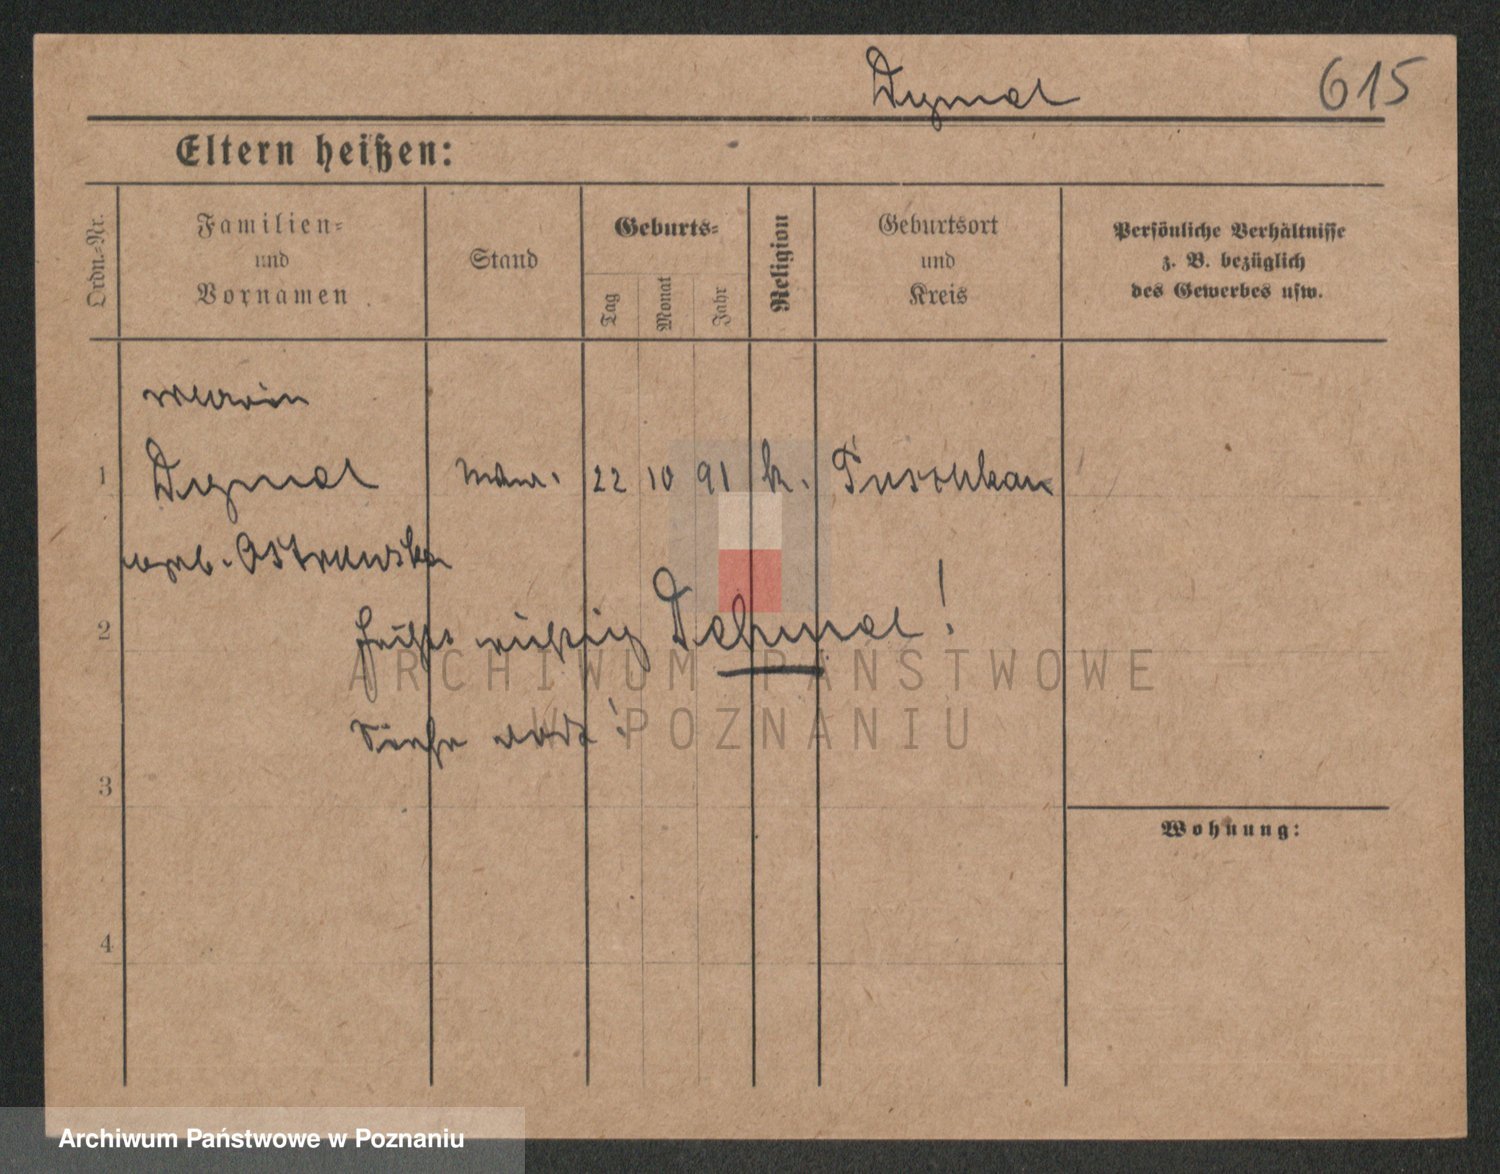 Dymal 615
Eltern heißen:
Ordn.-Nr.
Familien-
und
Vornamen
Stand
Geburts-
Tag
Monat
Jahr
Religion
Geburtsort
und
Kreis
Persönliche Verhältnisse
z. B. bezüglich
des Gewerbes usw.
Maria
1 Dymal 22 10 91 k. Puschkau
geb. Ostrowska
2 heißt richtig Dehmel!
Siehe dort!
3
Wohnung:
4
ARCHIWUM PAŃSTWOWE
W POZNANIU
Archiwum Państwowe w Poznaniu